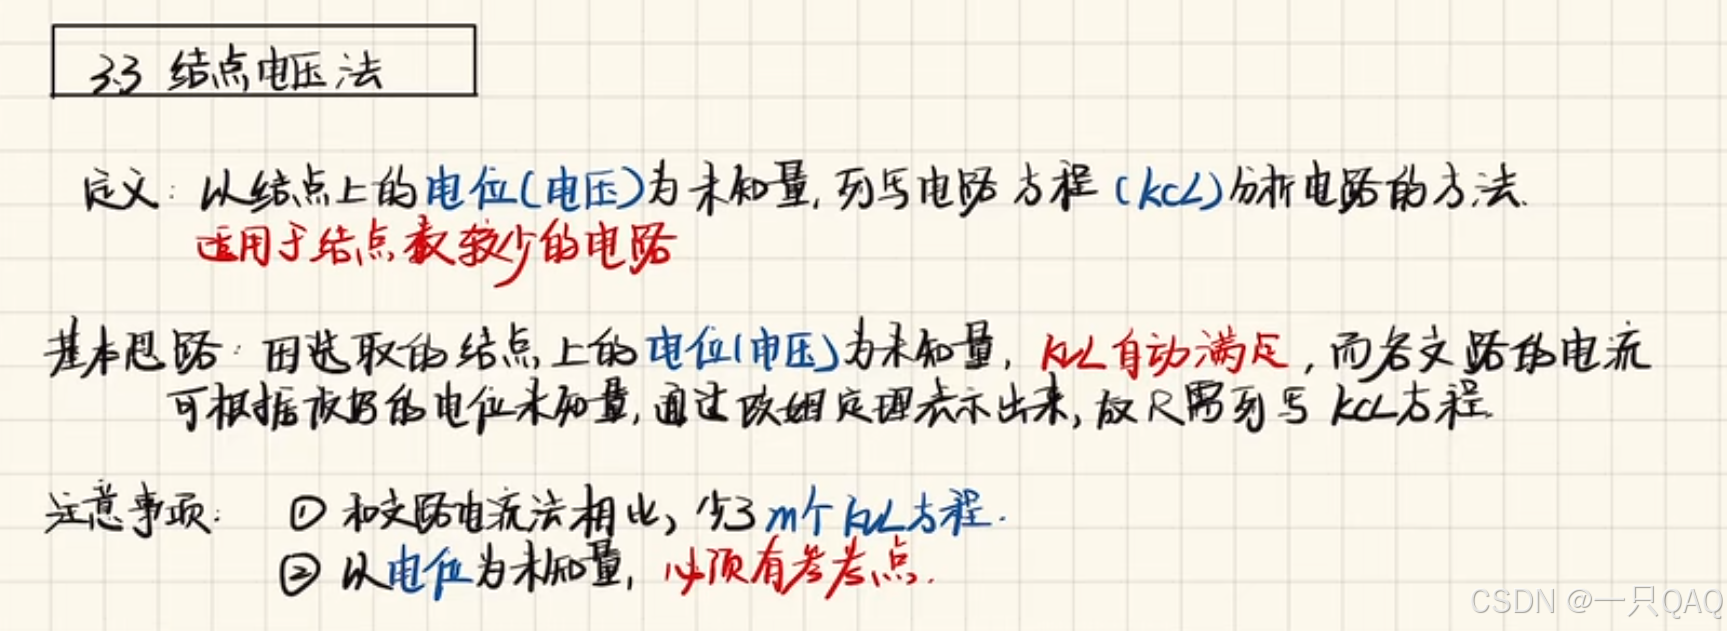 3.3 结点电压法
定义: 以结点上的电位(电压)为未知量, 列写电路方程 (KCL)分析电路的方法.
适用于结点数较少的电路
基本思路: 因选取的结点上的电位(电压)为未知量, KVL自动满足, 而各支路的电流
可根据假设的电位未知量, 通过欧姆定理表示出来, 故只需列写 KCL方程.
注意事项: ① 和支路电流法相比, 少了m个KVL方程.
② 以电位为未知量, 必须有参考点.
CSDN @一只QAQ